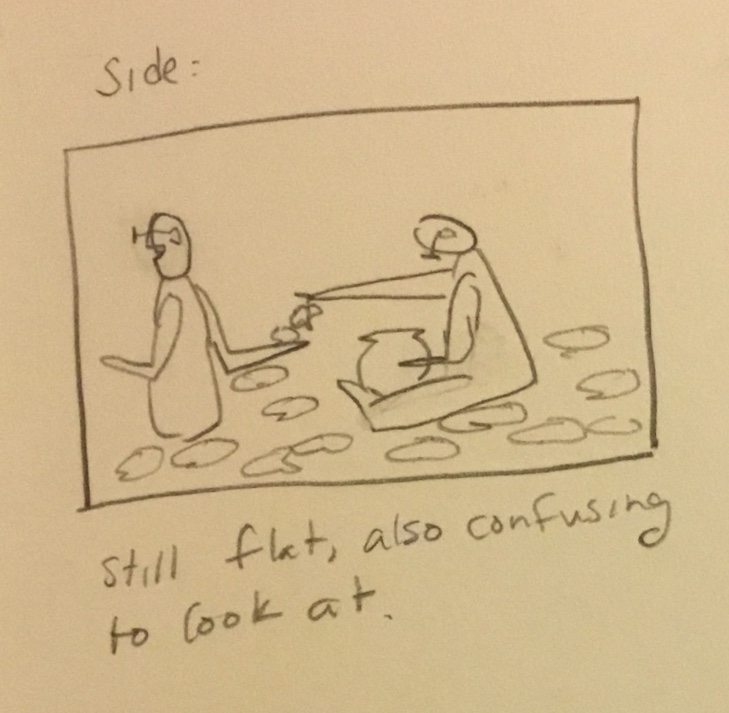 Side:
still flat, also confusing
to look at.